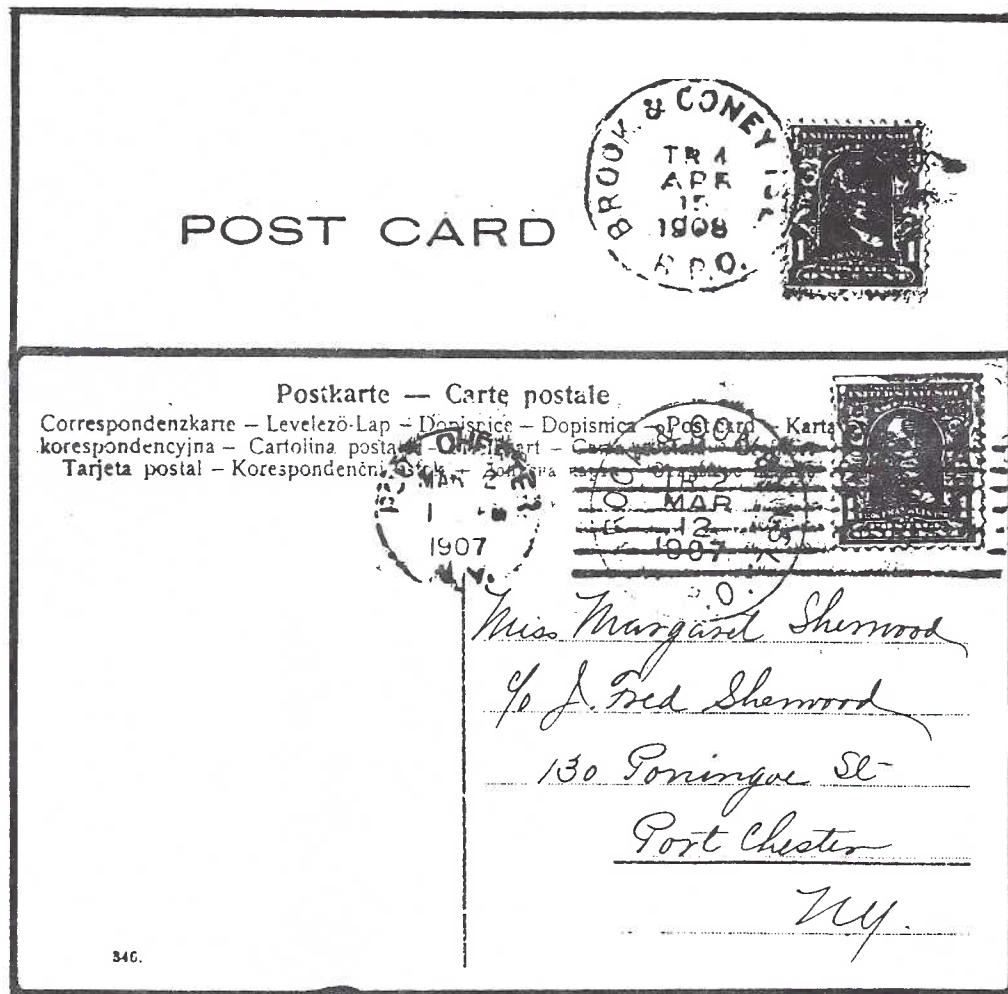 BROOK. & CONEY ISL.
TR 4
APR
15
1908
R.P.O.
POST CARD
Postkarte — Carte postale
Correspondenzkarte – Levelező-Lap – Dopisnice – Dopisnica – Post Card – Karta
korespondencyjna – Cartolina postale
Tarjeta postal – Korespondenční
MAR 12
1907
N.Y.
TR 2
MAR
12
1907
P.O.
Miss Margaret Sherwood
c/o J. Fred Sherwood
130 Poningoe St
Port Chester
NY.
346.